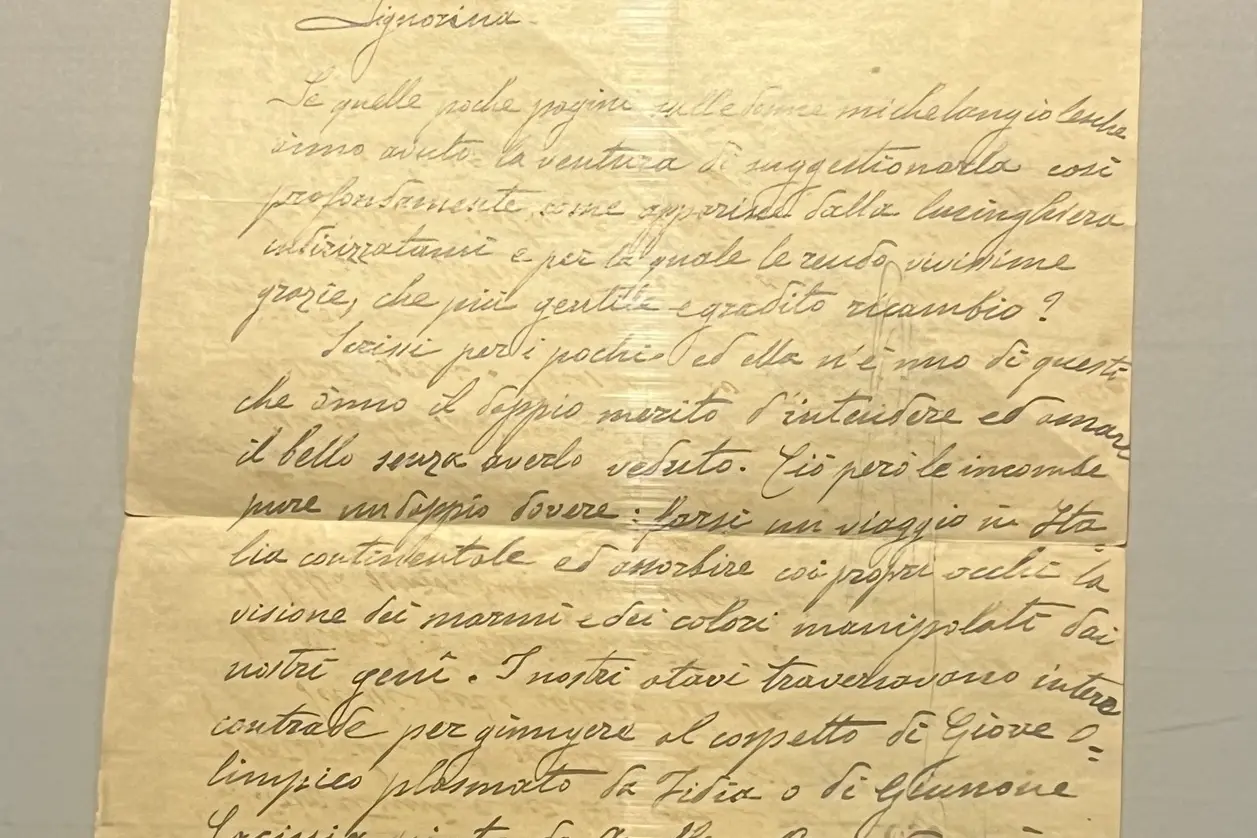 Signorina
Se quelle poche pagine sulle donne michelangiolesche
ànno avuto la ventura di suggestionarla così
profondamente, come apparisce dalla lusinghiera
indirizzatami e per la quale le rendo vivissime
grazie, che più gentile e gradito ricambio?
Scrissi per i pochi ed ella n'è uno di questi
che ànno il doppio merito d'intendere ed amare
il bello senza averlo veduto. Ciò però le incombe
pure un doppio dovere: farsi un viaggio in Ita-
lia continentale ed assorbire coi propri occhi la
visione dei marmi e dei colori manipolati dai
nostri genî. I nostri atavi traversavano intere
contrade per giungere al cospetto di Giove O-
limpico plasmato da Fidia o di Giunone
Lacinia